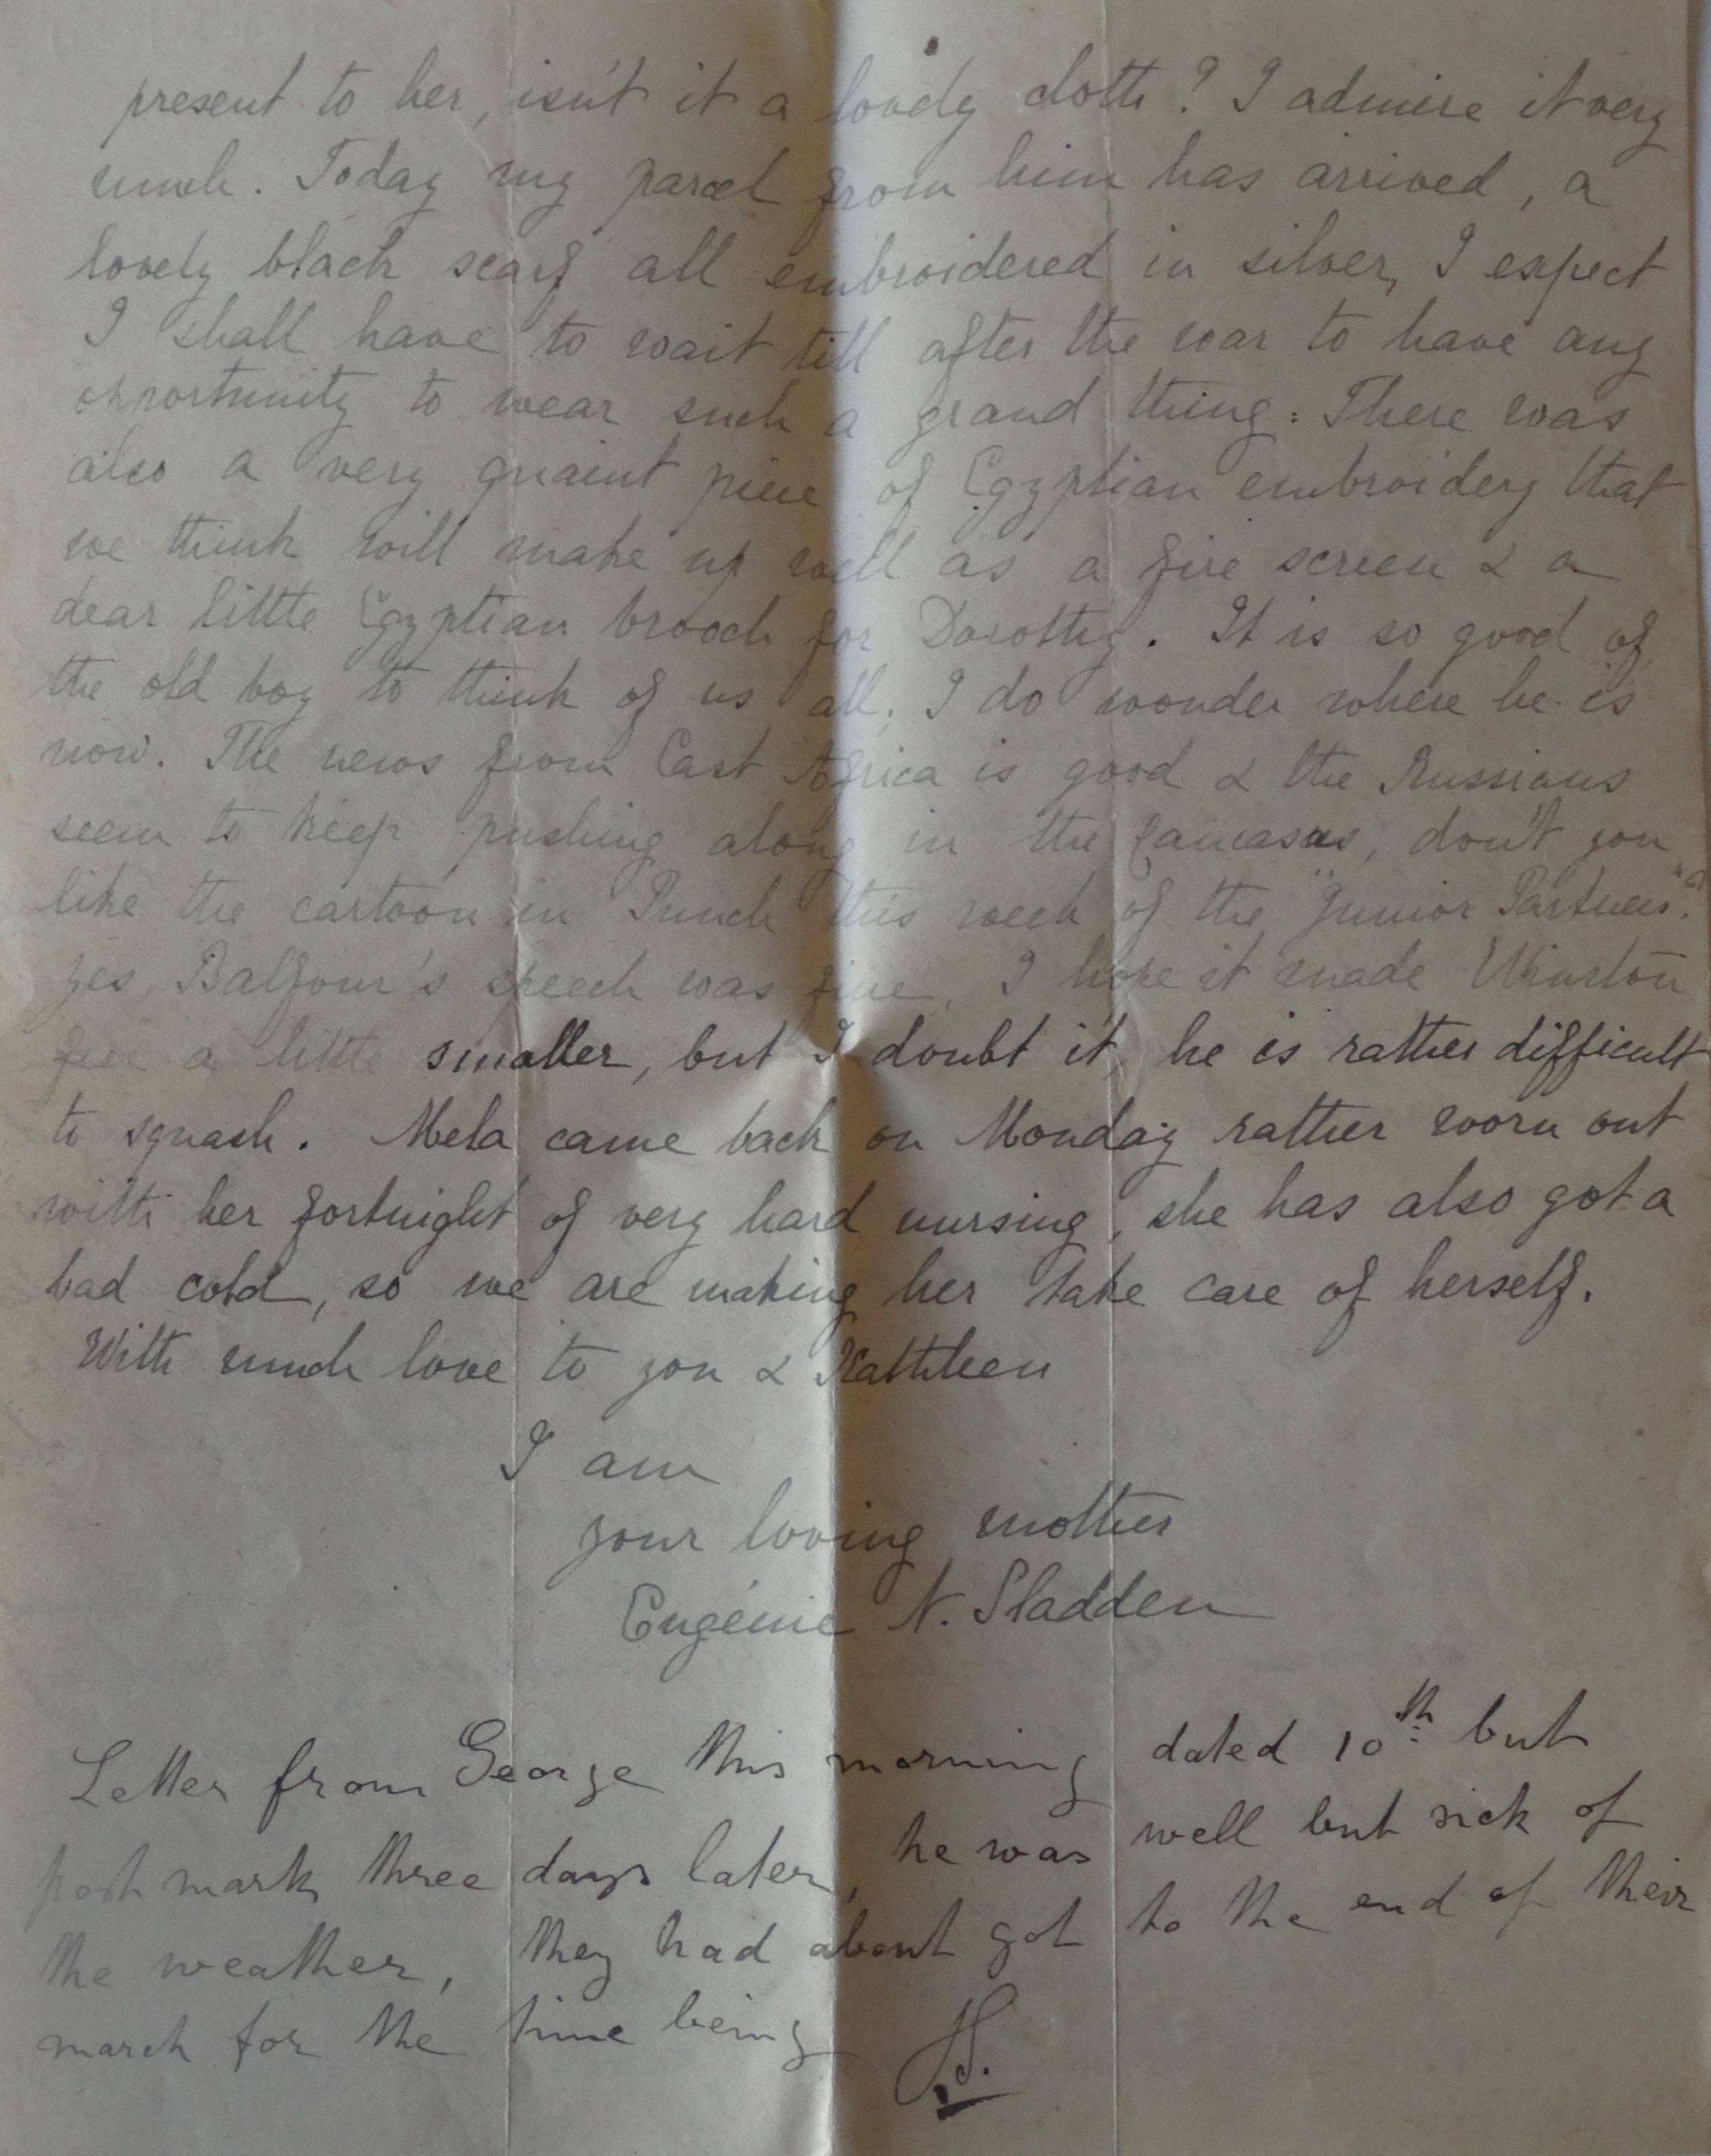 present to her, isn't it a lovely cloth? I admire it very
much. Today my parcel from him has arrived, a
lovely black scarf all embroidered in silver, I expect
I shall have to wait till after the war to have any
opportunity to wear such a grand thing. There was
also a very quaint piece of Egyptian embroidery that
we think will make up well as a fire screen & a
dear little Egyptian brooch for Dorothy. It is so good of
the old boy to think of us all. I do wonder where he is
now. The news from East Africa is good & the Russians
seem to keep pushing along in the Caucasus, don't you
like the cartoon in Punch this week of the "Junior Partner".
yes, Balfour's speech was fine, I hope it made Winston
feel a little smaller, but I doubt it, he is rather difficult
to squash. Mela came back on Monday rather worn out
with her fortnight of very hard nursing, she has also got a
bad cold, so we are making her take care of herself.
With much love to you & Kathleen
I am
your loving mother
Eugénie N. Sladden
Letter from George this morning dated 10th but
post mark three days later, he was well but sick of
the weather, they had about got to the end of their
march for the time being
JS.